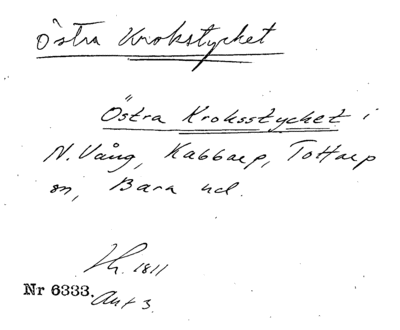 Östra Krokstycket
Östra Kroksstycket i
N. Vång, Kabbarp, Tottarp
sn, Bara hd.
Lh. 1811
Nr 6333.
Akt 3.